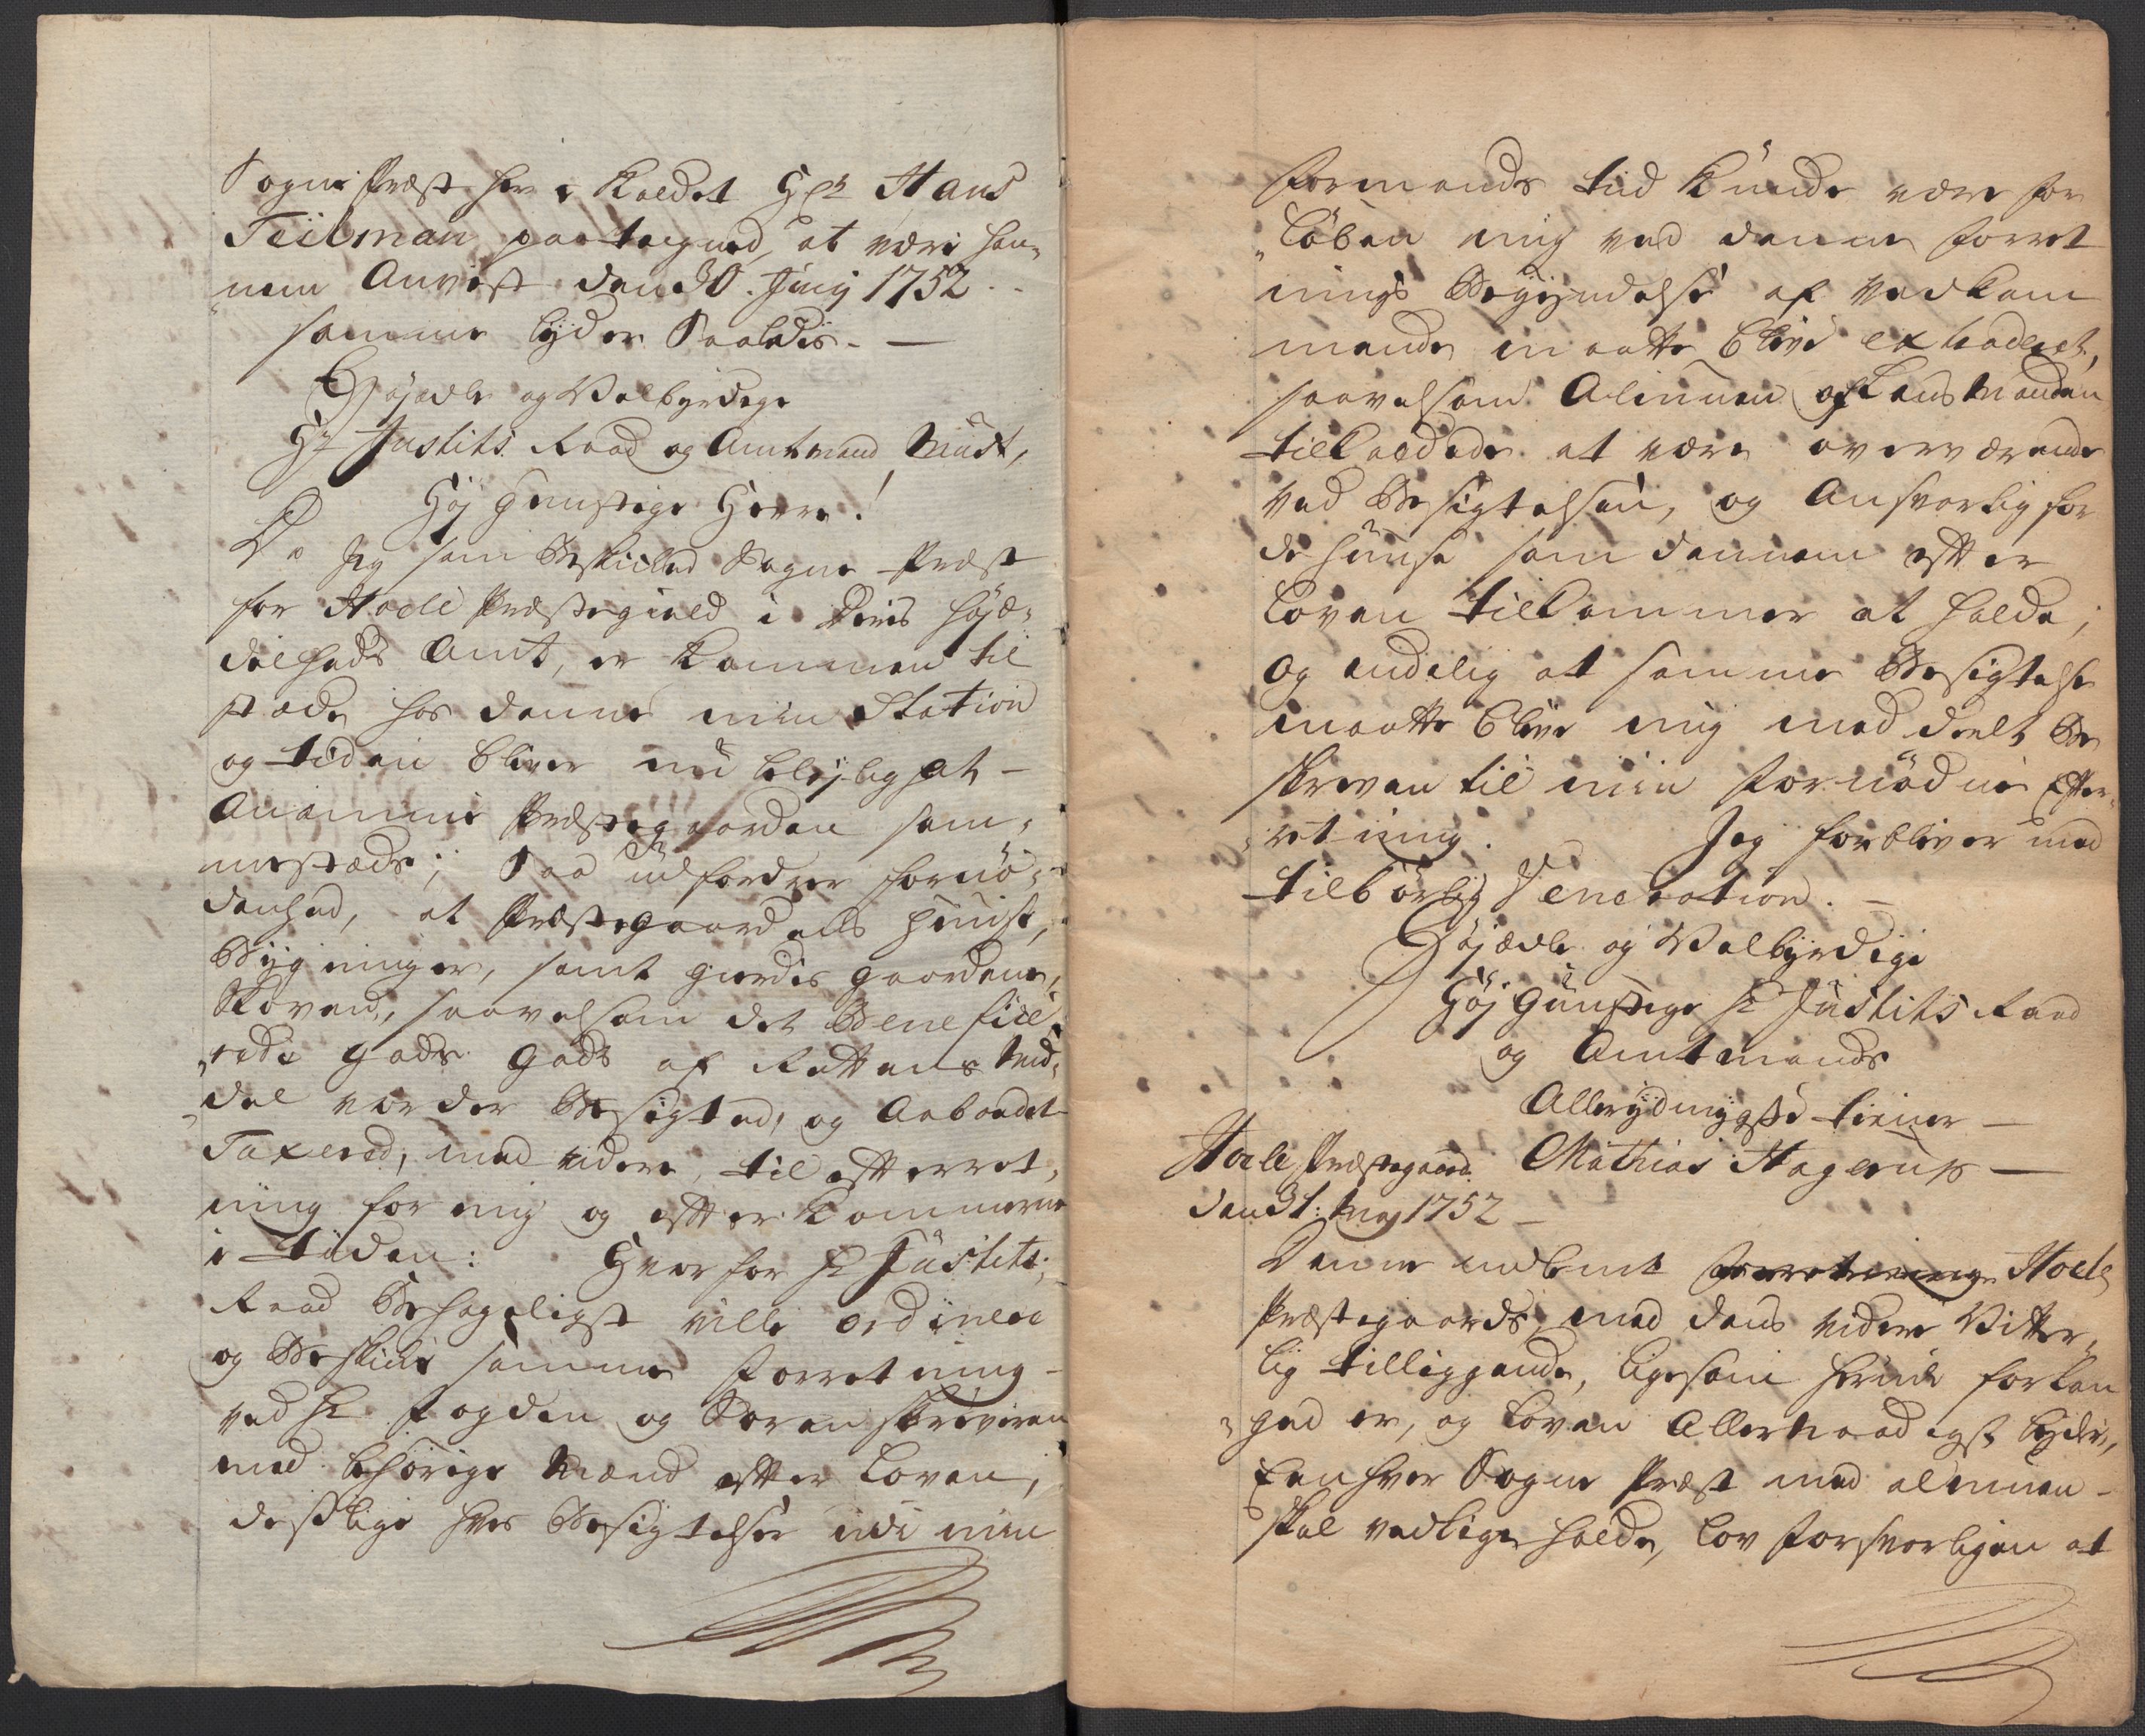 Sogne Præst her i Kaldet Hr Hans
Teilman paategned, at være han„
„nem Anvist den 30. Junij 1752.
samme lyder Saaledis. —
Højædle og Velbyrdege
Hr Justits Raad og Amtmand
Høj gunstige Herre!
Da Jeg som Beskicked Sogne Præst
for Hoele Præstegield i Deris Højæ„
delheds Amt, er kommen til
stæde hos denne min Station
og tiden bliver nu belejlig at
Anamme Præstegaarden sam„
mestæds; Saa udfordrer fornö„
denhed, at Præstegaardens Huuse,
Bygninger, samt gierdis gaardene,
Skoven, saavelsom det Benefice„
„rede gods af Rettens Mid„
„del vorder Besigted, og Aaboedet
Taxered, med videre, til efterret„
ning for mig og efterkommerne
i tiden: Hvorfor Hr Justits„
Raad Behageligst ville ordinere
og Beskicke samme Forretning
ved Hr Fogden og Sorenskriveren
med behörige Mænd efter Loven,
desligeste hvis Besigtelser udi min
Formands tid kunde være for
„löben mig ved denne Forret
nings Begyndelse af vedkom
mende maatte blive extraderet,
saavelsom Alinuen af Lensmanden
tilkaldede at være overværende
ved Besigtelsen, og Ansvarlig for
de huuse som dennem efter
Loven tilkommer at holde;
og endelig at samme Besigtelse
maatte blive mig meddeelt Be
skreven til min fornödne Efter„
„retning. Jeg forbliver med
tilbörlig Veneration. —
Højædle og Velbyrdige
Høj gunstige Hr Justits Raad
og Amtmands
Allerydmygste tiener —
Hoele Præstegaard Mathias Hagerup —
den 31: Maj 1752 —
Denne ombemt Forretninge Hoels
Præstegaards, med dens videre Vitter„
lig tilliggende, ligesom herudi forlan
„ged er, og Loven Allernaadigst byder,
Eenhver Sogne Præst med alinuen
skal vedlige holde, lov forsvarligen at